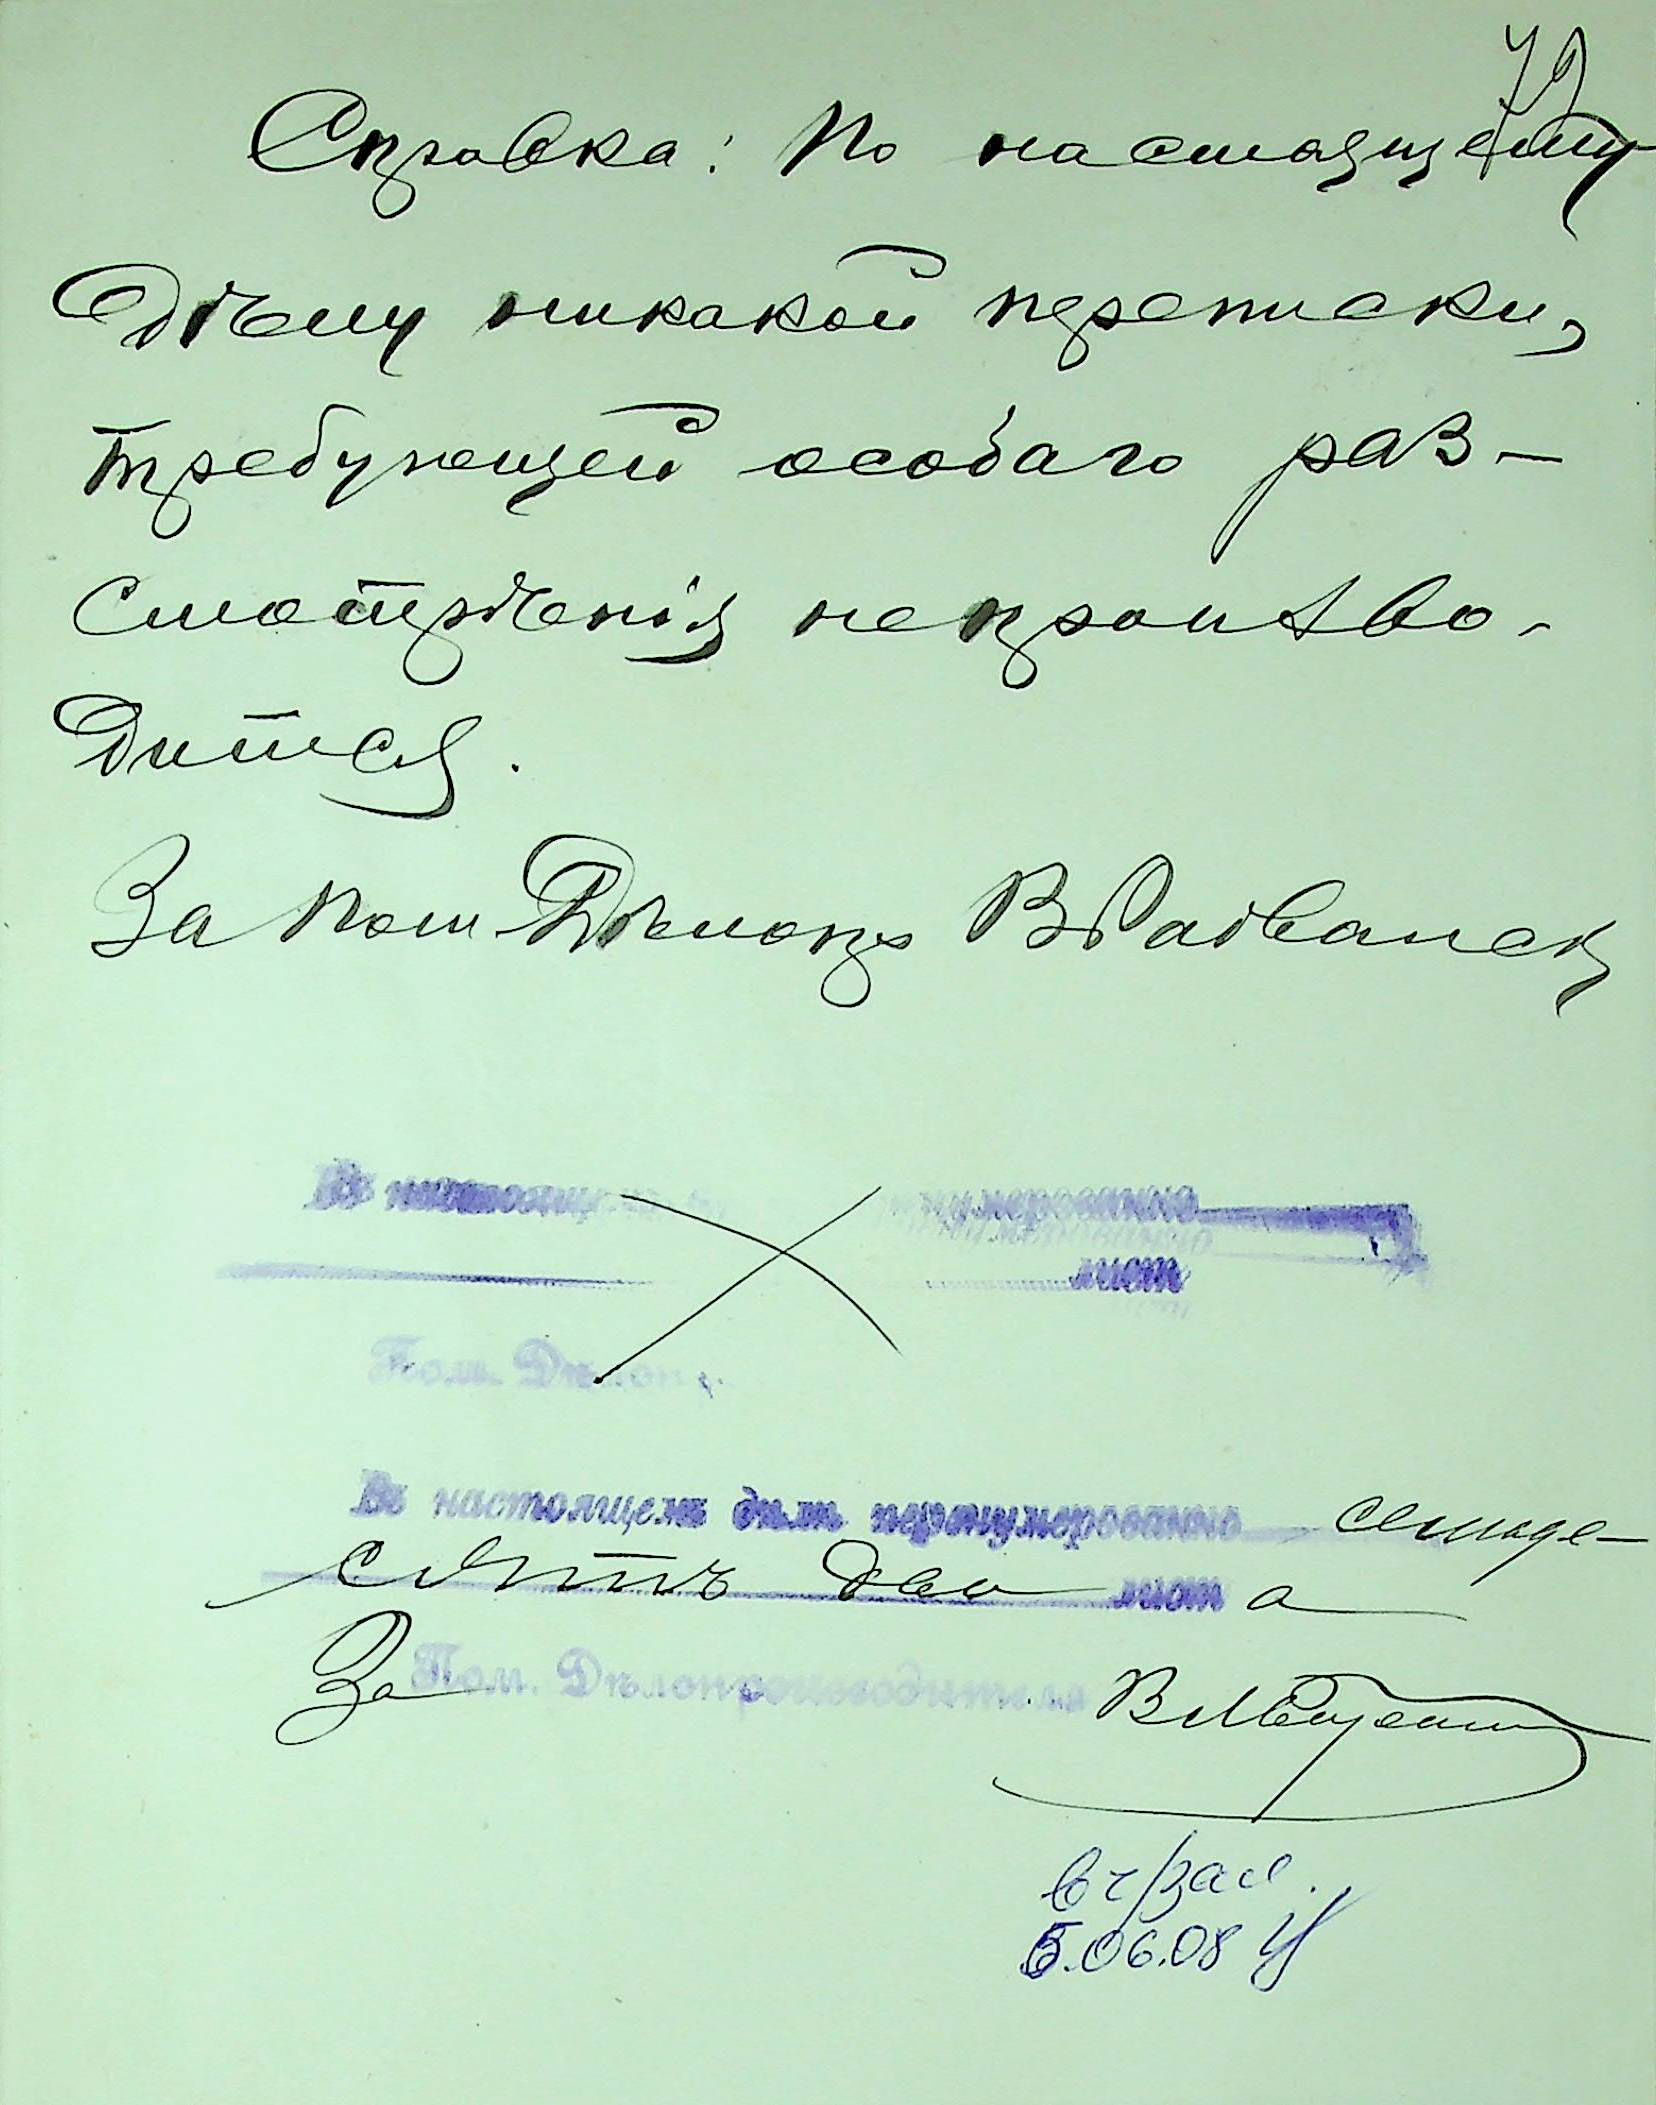 72
Справка: По настоящему
дѣлу никакой переписки,
требующей особаго раз-
смотрѣнія непроизво-
дится.
За Пом. Дѣлопр
Въ настояще нумеровано
лист
Пом. Дѣлоп
Въ настоящемъ дѣлѣ перенумеровано семьде-
сятъ два лист а
За Пом. Дѣлопроизводителя
5.06.08